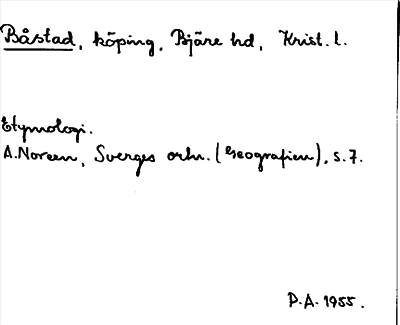 Båstad, köping, Bjäre hd, Krist. l.
Etymologi.
A. Noreen, Sverges ortn. (Geografien), s. 7.
P.A. 1955.